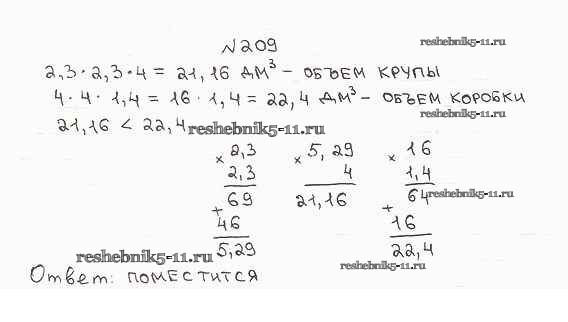 №209
reshebnik5-11.ru
2,3·2,3·4 = 21,16 дм³ – объем крупы
4·4·1,4 = 16·1,4 = 22,4 дм³ – объем коробки
reshebnik5-11.ru
21,16 < 22,4
reshebnik5-11.ru
× 2,3 × 5,29 × 16
2,3 4 1,4
69 21,16 64
reshebnik5-11.ru
+ 46 + 16
5,29 22,4
reshebnik5-11.ru
reshebnik5-11.ru
Ответ: поместится